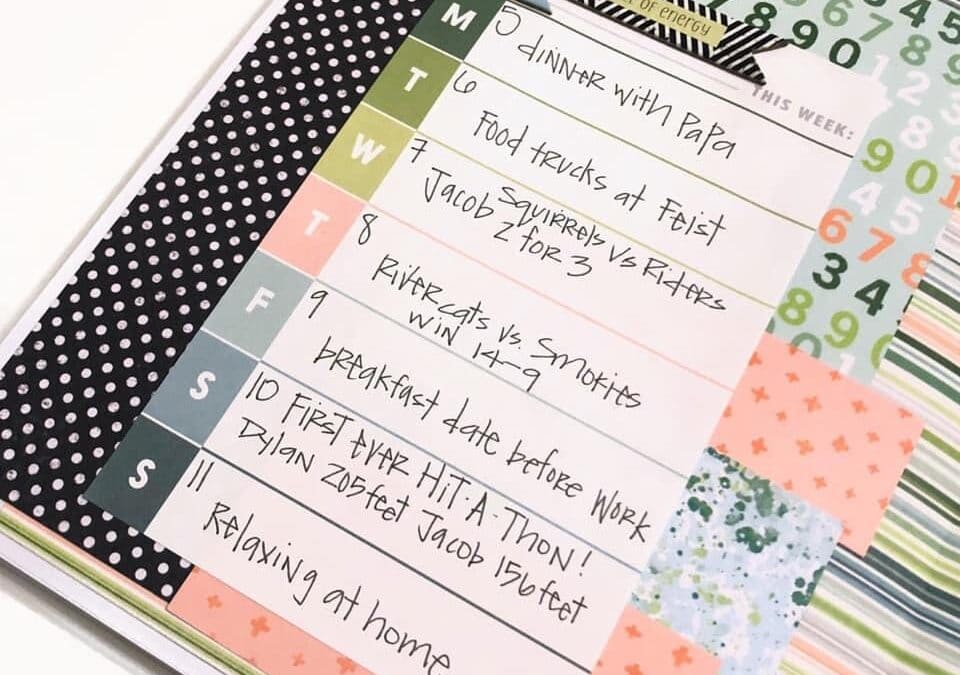 OF ENERGY
THIS WEEK:
M
5 dinner with Papa
T
6
Food trucks at Feist
W
7
Squirrels vs Riders
Jacob 2 for 3
T
8
Rivercats vs. Smokies
win 14-9
F
9
breakfast date before work
S
10 First ever Hit-A-Thon!
Dylan 205 feet Jacob 156 feet
S
11
Relaxing at home